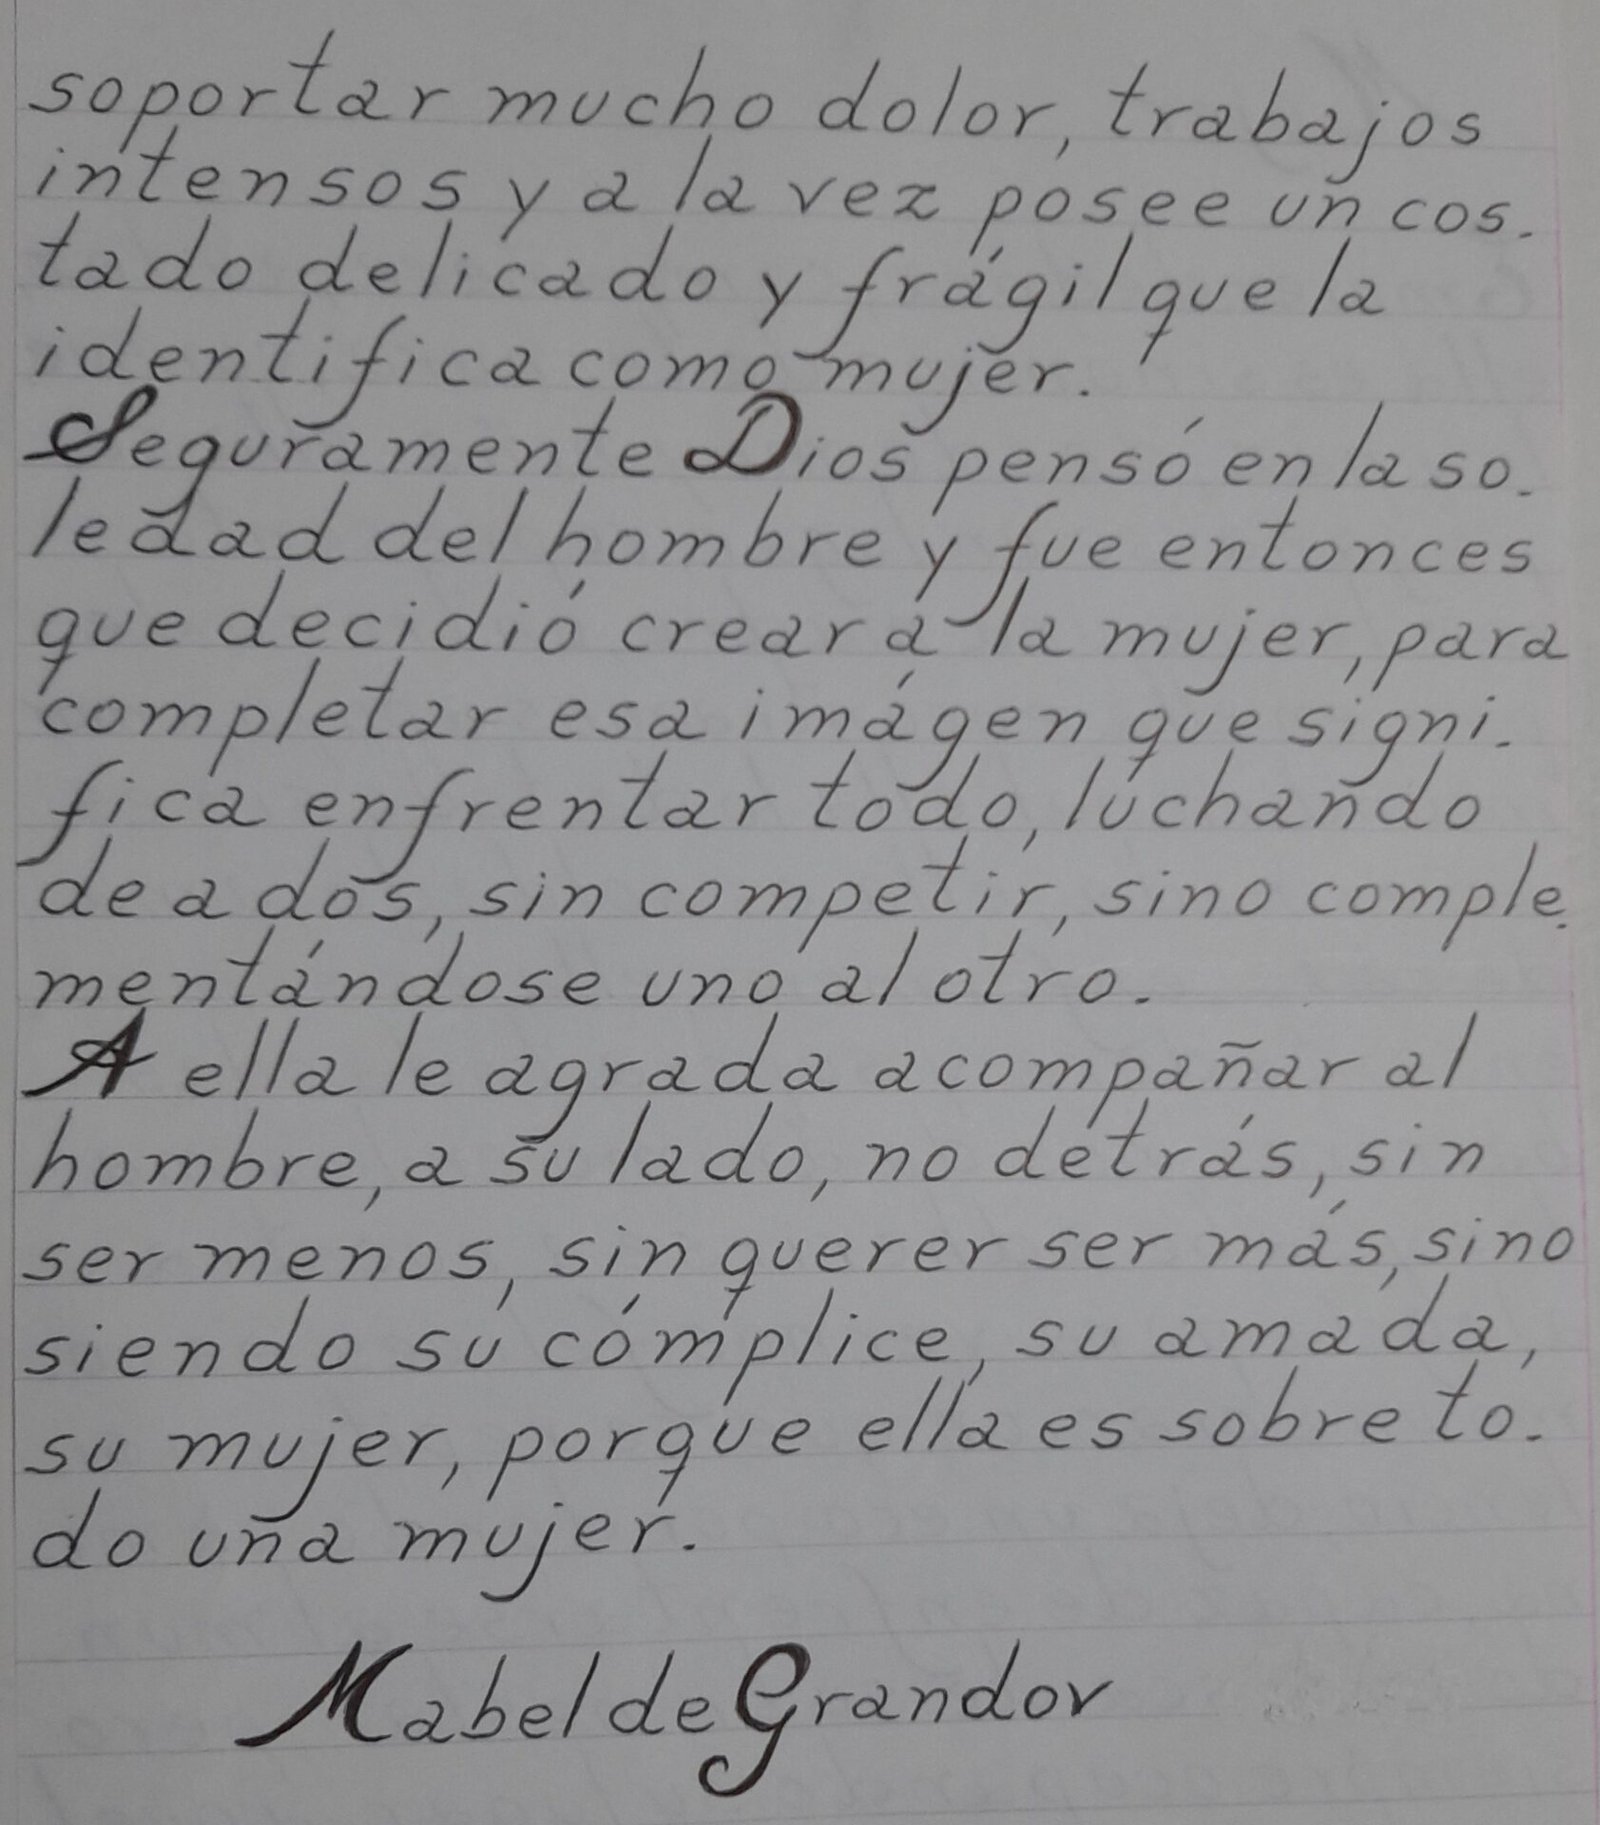 soportar mucho dolor, trabajos
intensos y a la vez posee un cos.
tado delicado y frágil que la
identifica como mujer.
Seguramente Dios pensó en la so.
ledad del hombre y fue entonces
que decidió crear a la mujer, para
completar esa imágen que signi.
fica enfrentar todo, luchando
de a dos, sin competir, sino comple.
mentándose uno al otro.
A ella le agrada acompañar al
hombre, a su lado, no detrás, sin
ser menos, sin querer ser más, sino
siendo su cómplice, su amada,
su mujer, porque ella es sobre to.
do una mujer.
Mabel de Grandov